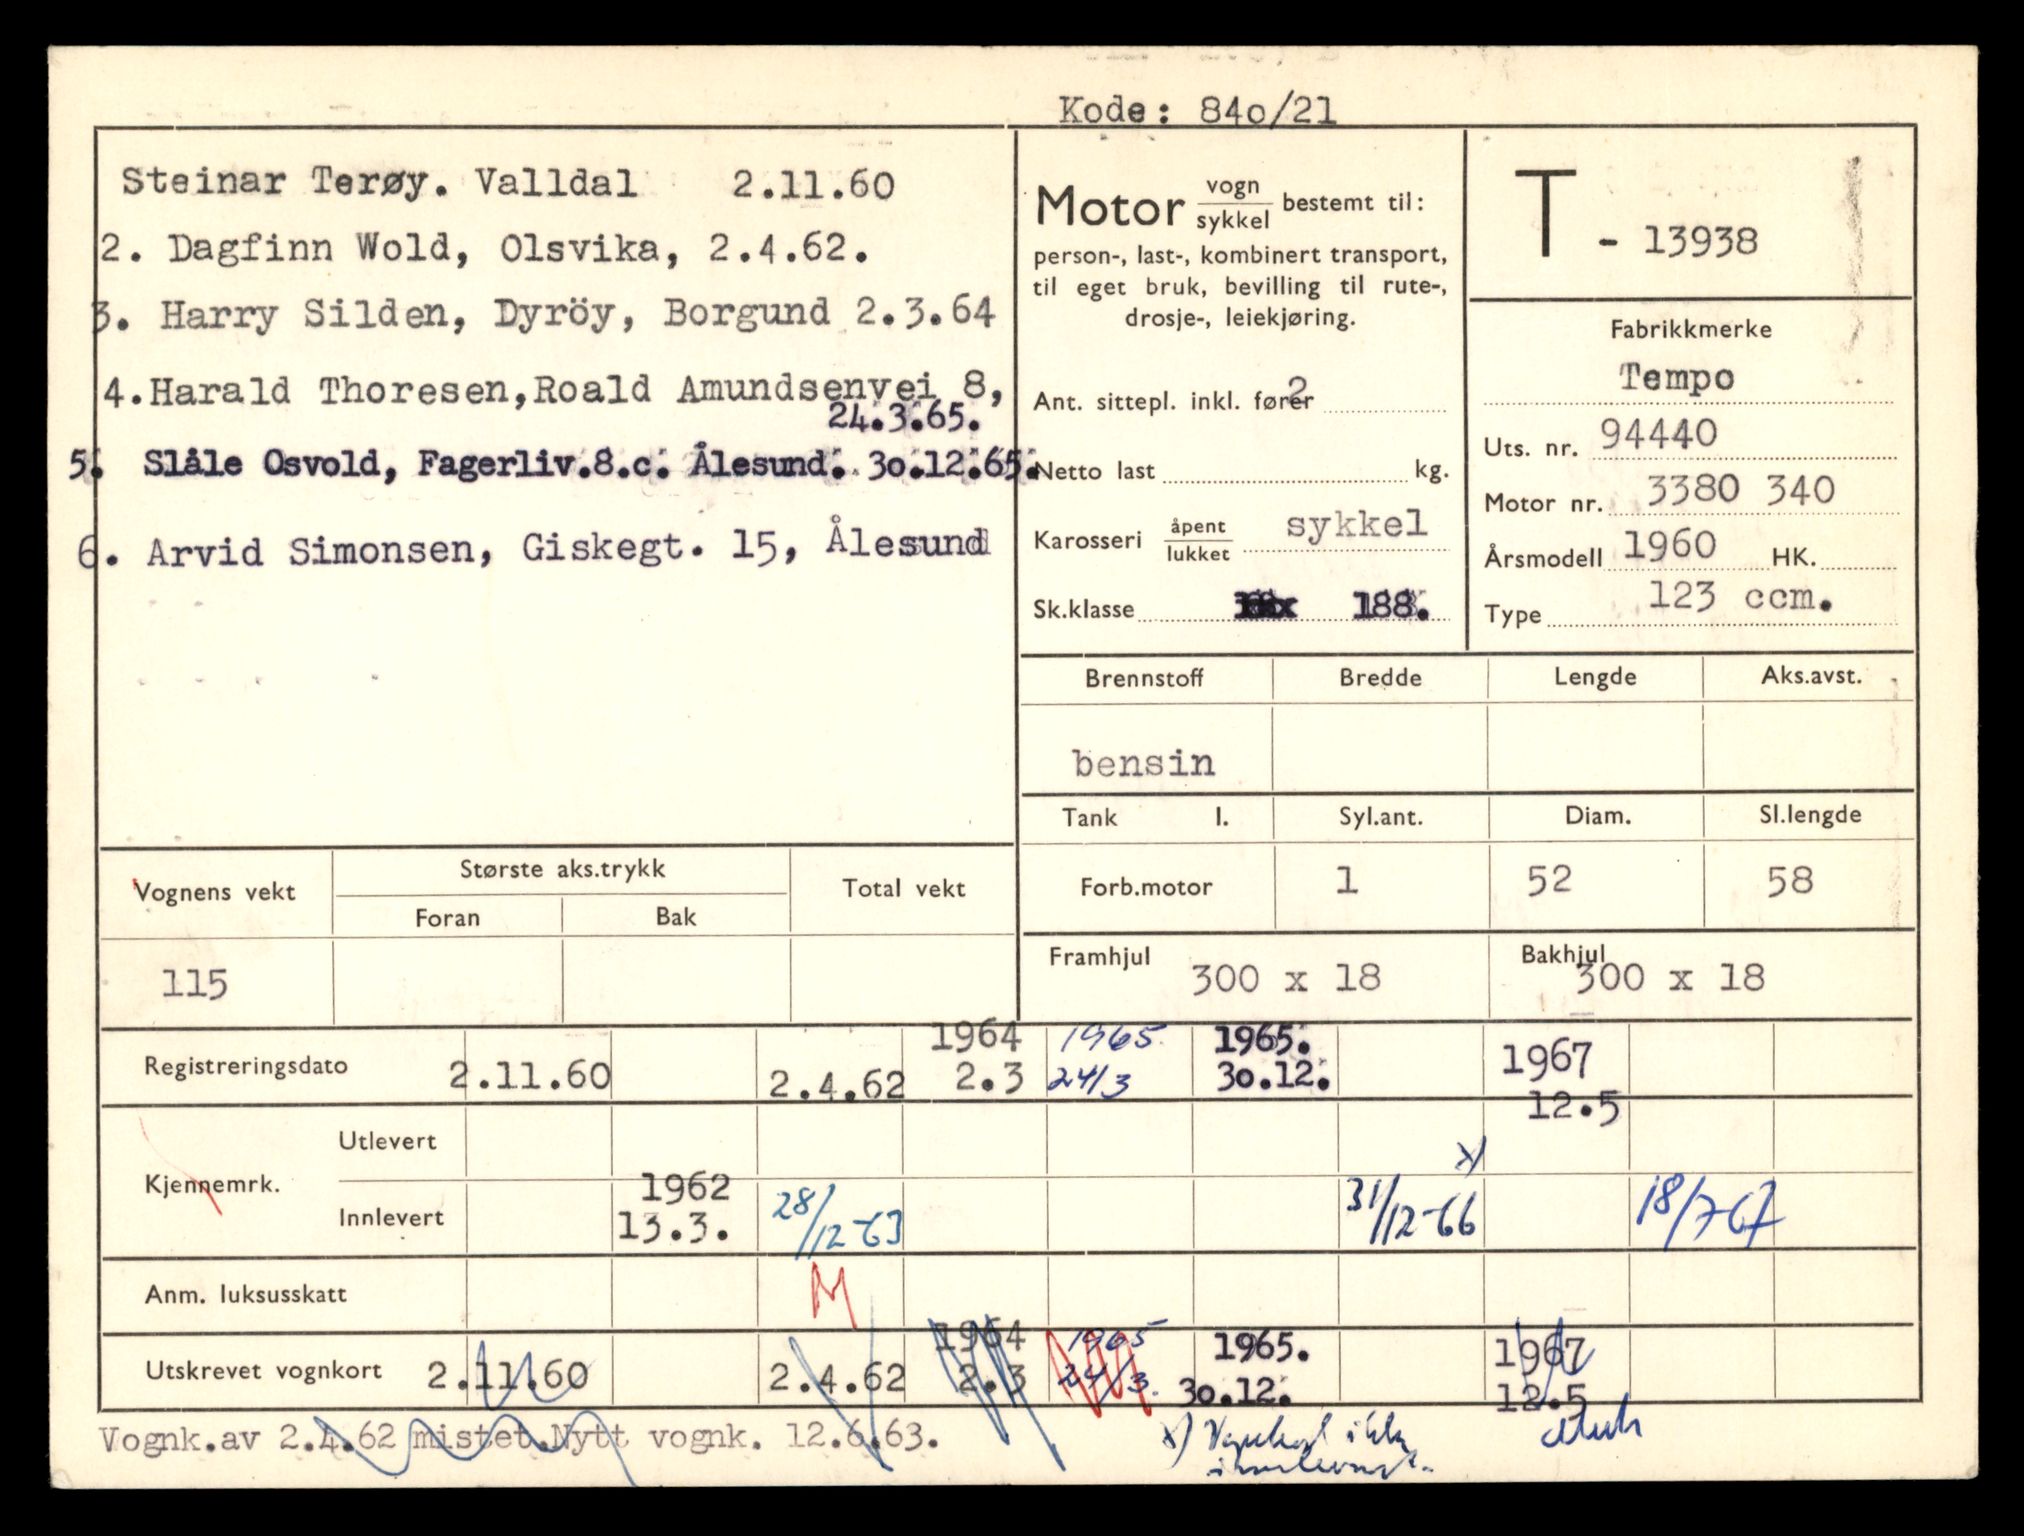 Kode: 84o/21
Steinar Terøy. Valldal 2.11.60
2. Dagfinn Wold, Olsvika, 2.4.62.
3. Harry Silden, Dyröy, Borgund 2.3.64
4.Harald Thoresen,Roald Amundsenvei 8,
24.3.65.
5. Slåle Osvold, Fagerliv.8.c. Ålesund. 3o.12.65.
6. Arvid Simonsen, Giskegt. 15, Ålesund
Motor vogn/sykkel bestemt til:
person-, last-, kombinert transport,
til eget bruk, bevilling til rute-,
drosje-, leiekjøring.
Ant. sittepl. inkl. fører 2
Netto last kg.
Karosseri åpent/lukket sykkel
Sk.klasse 188.
T - 13938
Fabrikkmerke
Tempo
Uts. nr. 94440
Motor nr. 3380 340
Årsmodell 1960 HK.
Type 123 ccm.
Brennstoff Bredde Lengde Aks.avst.
bensin
Tank l. Syl.ant. Diam. Sl.lengde
Forb.motor 1 52 58
Framhjul 300 x 18 Bakhjul 300 x 18
Vognens vekt Største aks.trykk Total vekt
Foran Bak
115
1964 1965 1965. 1967
Registreringsdato 2.11.60 2.4.62 2.3 24/3 3o.12. 12.5
Kjennemrk.
Utlevert x)
1962
Innlevert 13.3. 28/12-63 31/12-66 18/7-67
Anm. luksusskatt M
1964 1965 1965. 1967
Utskrevet vognkort 2.11.60 2.4.62 2.3 24/3. 3o.12. 12.5
Vognk.av 2.4.62 mistet.Nytt vognk. 12.6.63.
x) Vognkort ikke
innlevert.